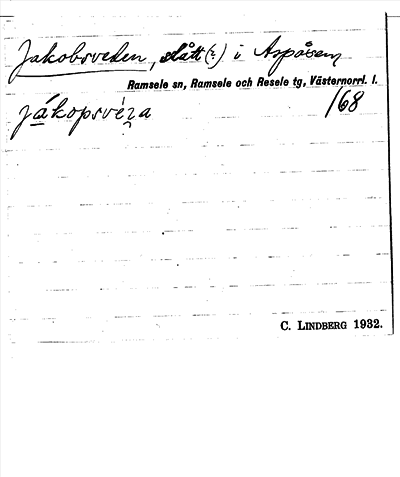 Jakobsveden, slått(?) i Aspåsen
Ramsele sn, Ramsele och Resele tg, Västernorrl. l.
jákopsvéɀa
168
C. LINDBERG 1932.